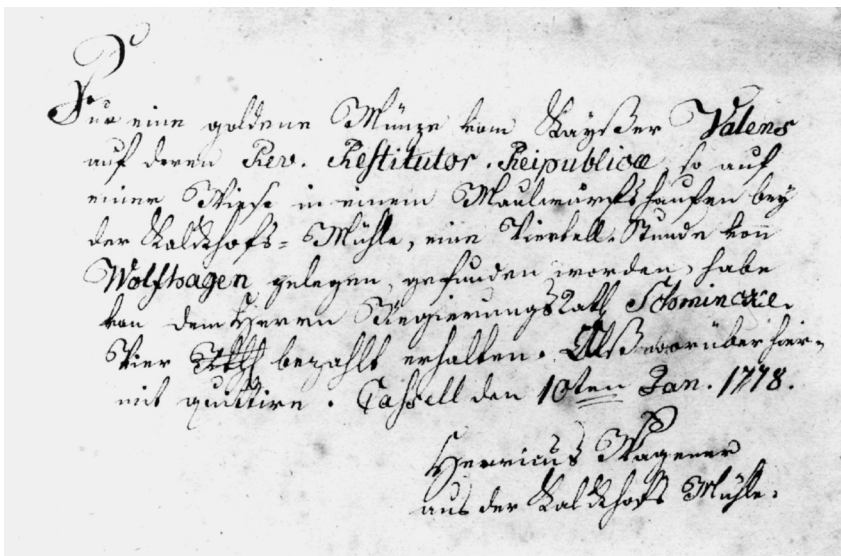 Für eine goldene Müntze vom Kayßer Valens
auf deren Rev. Restitutor. Reipublicæ so auf
einer Wiese in einem Maulwurfshaufen bey
der Kalckhofs-Mühle, eine Viertell-Stunde von
Wolfhagen gelegen, gefunden worden, habe
von dem Herrn RegierungsRath Schmincke.
Vier bezahlt erhalten. Alß worüber hier-
mit quittire. Cassell den 10ten Jan. 1778.
Henricus Wagener
aus der Kalckhofs Mühle.